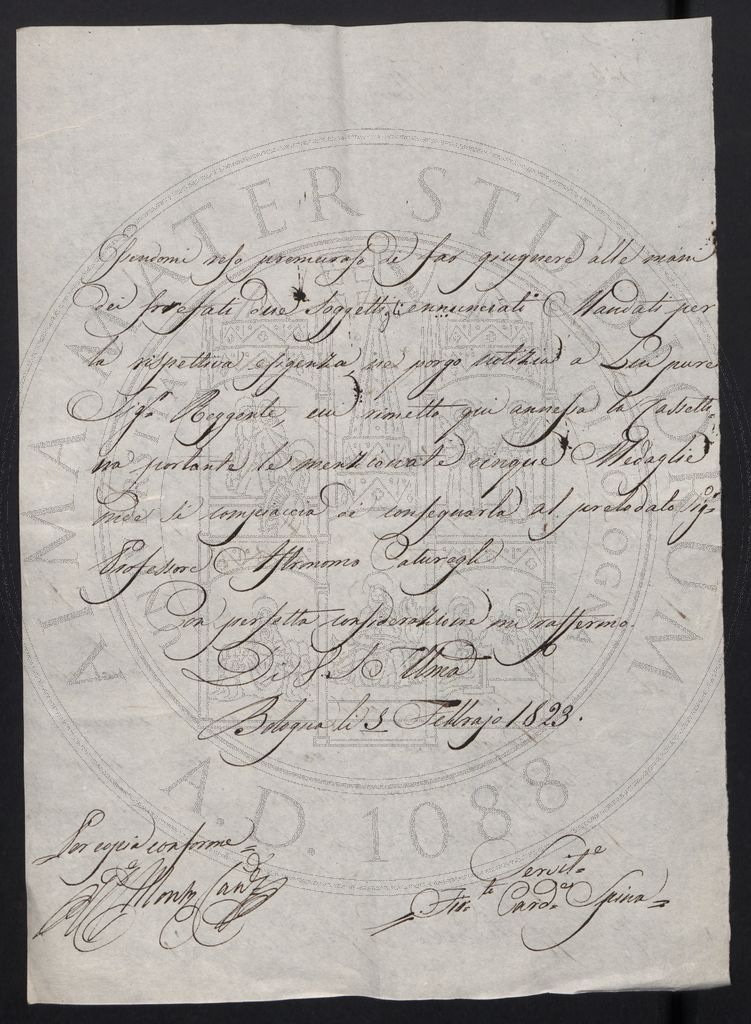 Essendomi reso premuroso di far giugnere alle mani
dei prefati due Soggetti gli ennunciati Mandati per
la rispettiva esigenza, ne porgo notizia a Lei pure
Sigr. Reggente, cui rimetto qui annessa la Cassetti-
na portante le menzionate cinque Medaglie
onde si compiaccia di consegnarla al prelodato Sigr.
Professore Astronomo Caturegli
Con perfetta considerazione mi raffermo.
Di S. S. Illma
Bologna li 5 Febbrajo 1823.
Per copia conforme
Servit.e
Fir.to Card.e Spina
ALMA MATER STUDIORUM
A.D. 1088